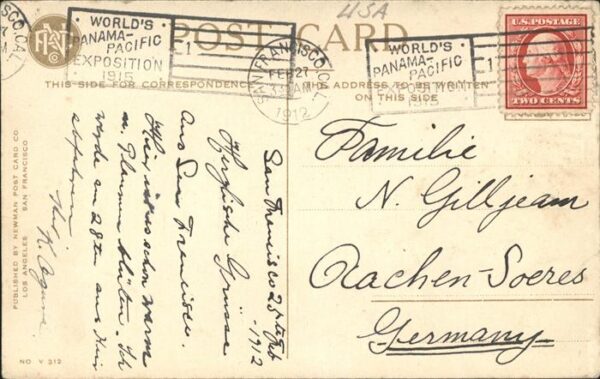 USA
POST CARD
WORLD'S
PANAMA-
PACIFIC
EXPOSITION
1915
1
SAN FRANCISCO, CAL.
FEB 27
AM
1912
WORLD'S
PANAMA-
PACIFIC
U.S. POSTAGE
TWO CENTS
THIS SIDE FOR CORRESPONDENCE
THE ADDRESS TO BE WRITTEN
ON THIS SIDE
San Francisco 25ten Feb
- 1912
Herzliche Grüsse
aus San Francisco.
Hier ist es schon warm
u. blühen. Ich
werde am 28ten aus hier
abfahren
Familie
N. Gilljeam
Aachen-Soeres
Germany
PUBLISHED BY NEWMAN POST CARD CO.
LOS ANGELES SAN FRANCISCO
NO. V 212